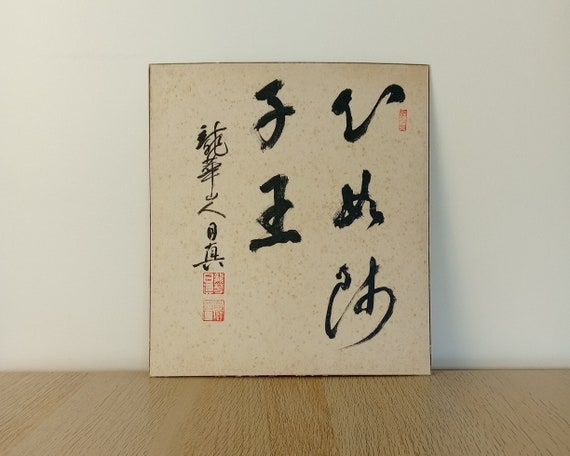 心如師
子王
龍華山人日真